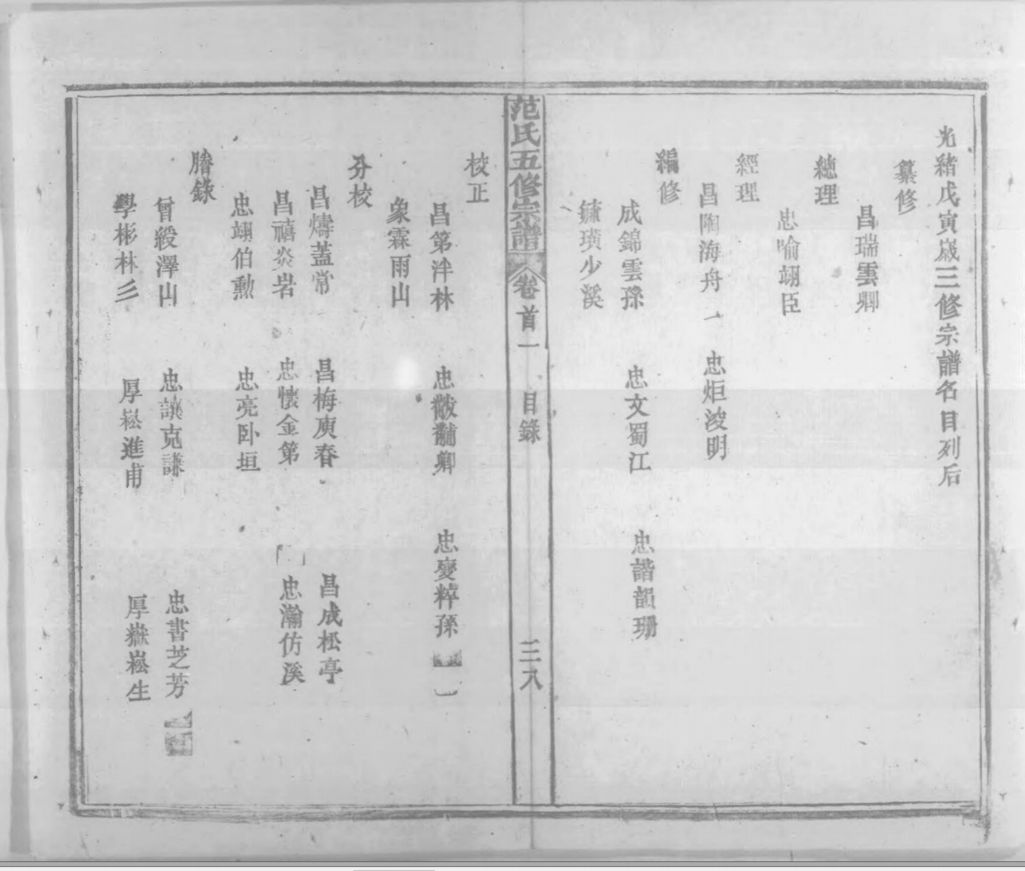 光緒戊寅歲三修宗譜名目列后
纂修
昌瑞雲卿
總理
忠喻翊臣
經理
昌陶海舟 忠炬浚明
編修
成錦雲孫 忠文蜀江 忠諧韻珊
鏞璜少溪
范氏五修宗譜 卷首一 目錄 三八
校正
昌第泮林 忠黻黼卿 忠變粹孫
象霖雨山
分校
昌燽蓋常 昌梅庾春 昌成松亭
昌禧炎岩 忠懷金第 忠瀚仿溪
忠翊伯勲 忠亮卧垣
謄錄
曾毅澤山 忠讓克謙 忠書芝芳
學彬林彡 厚崧進甫 厚嶽崧生